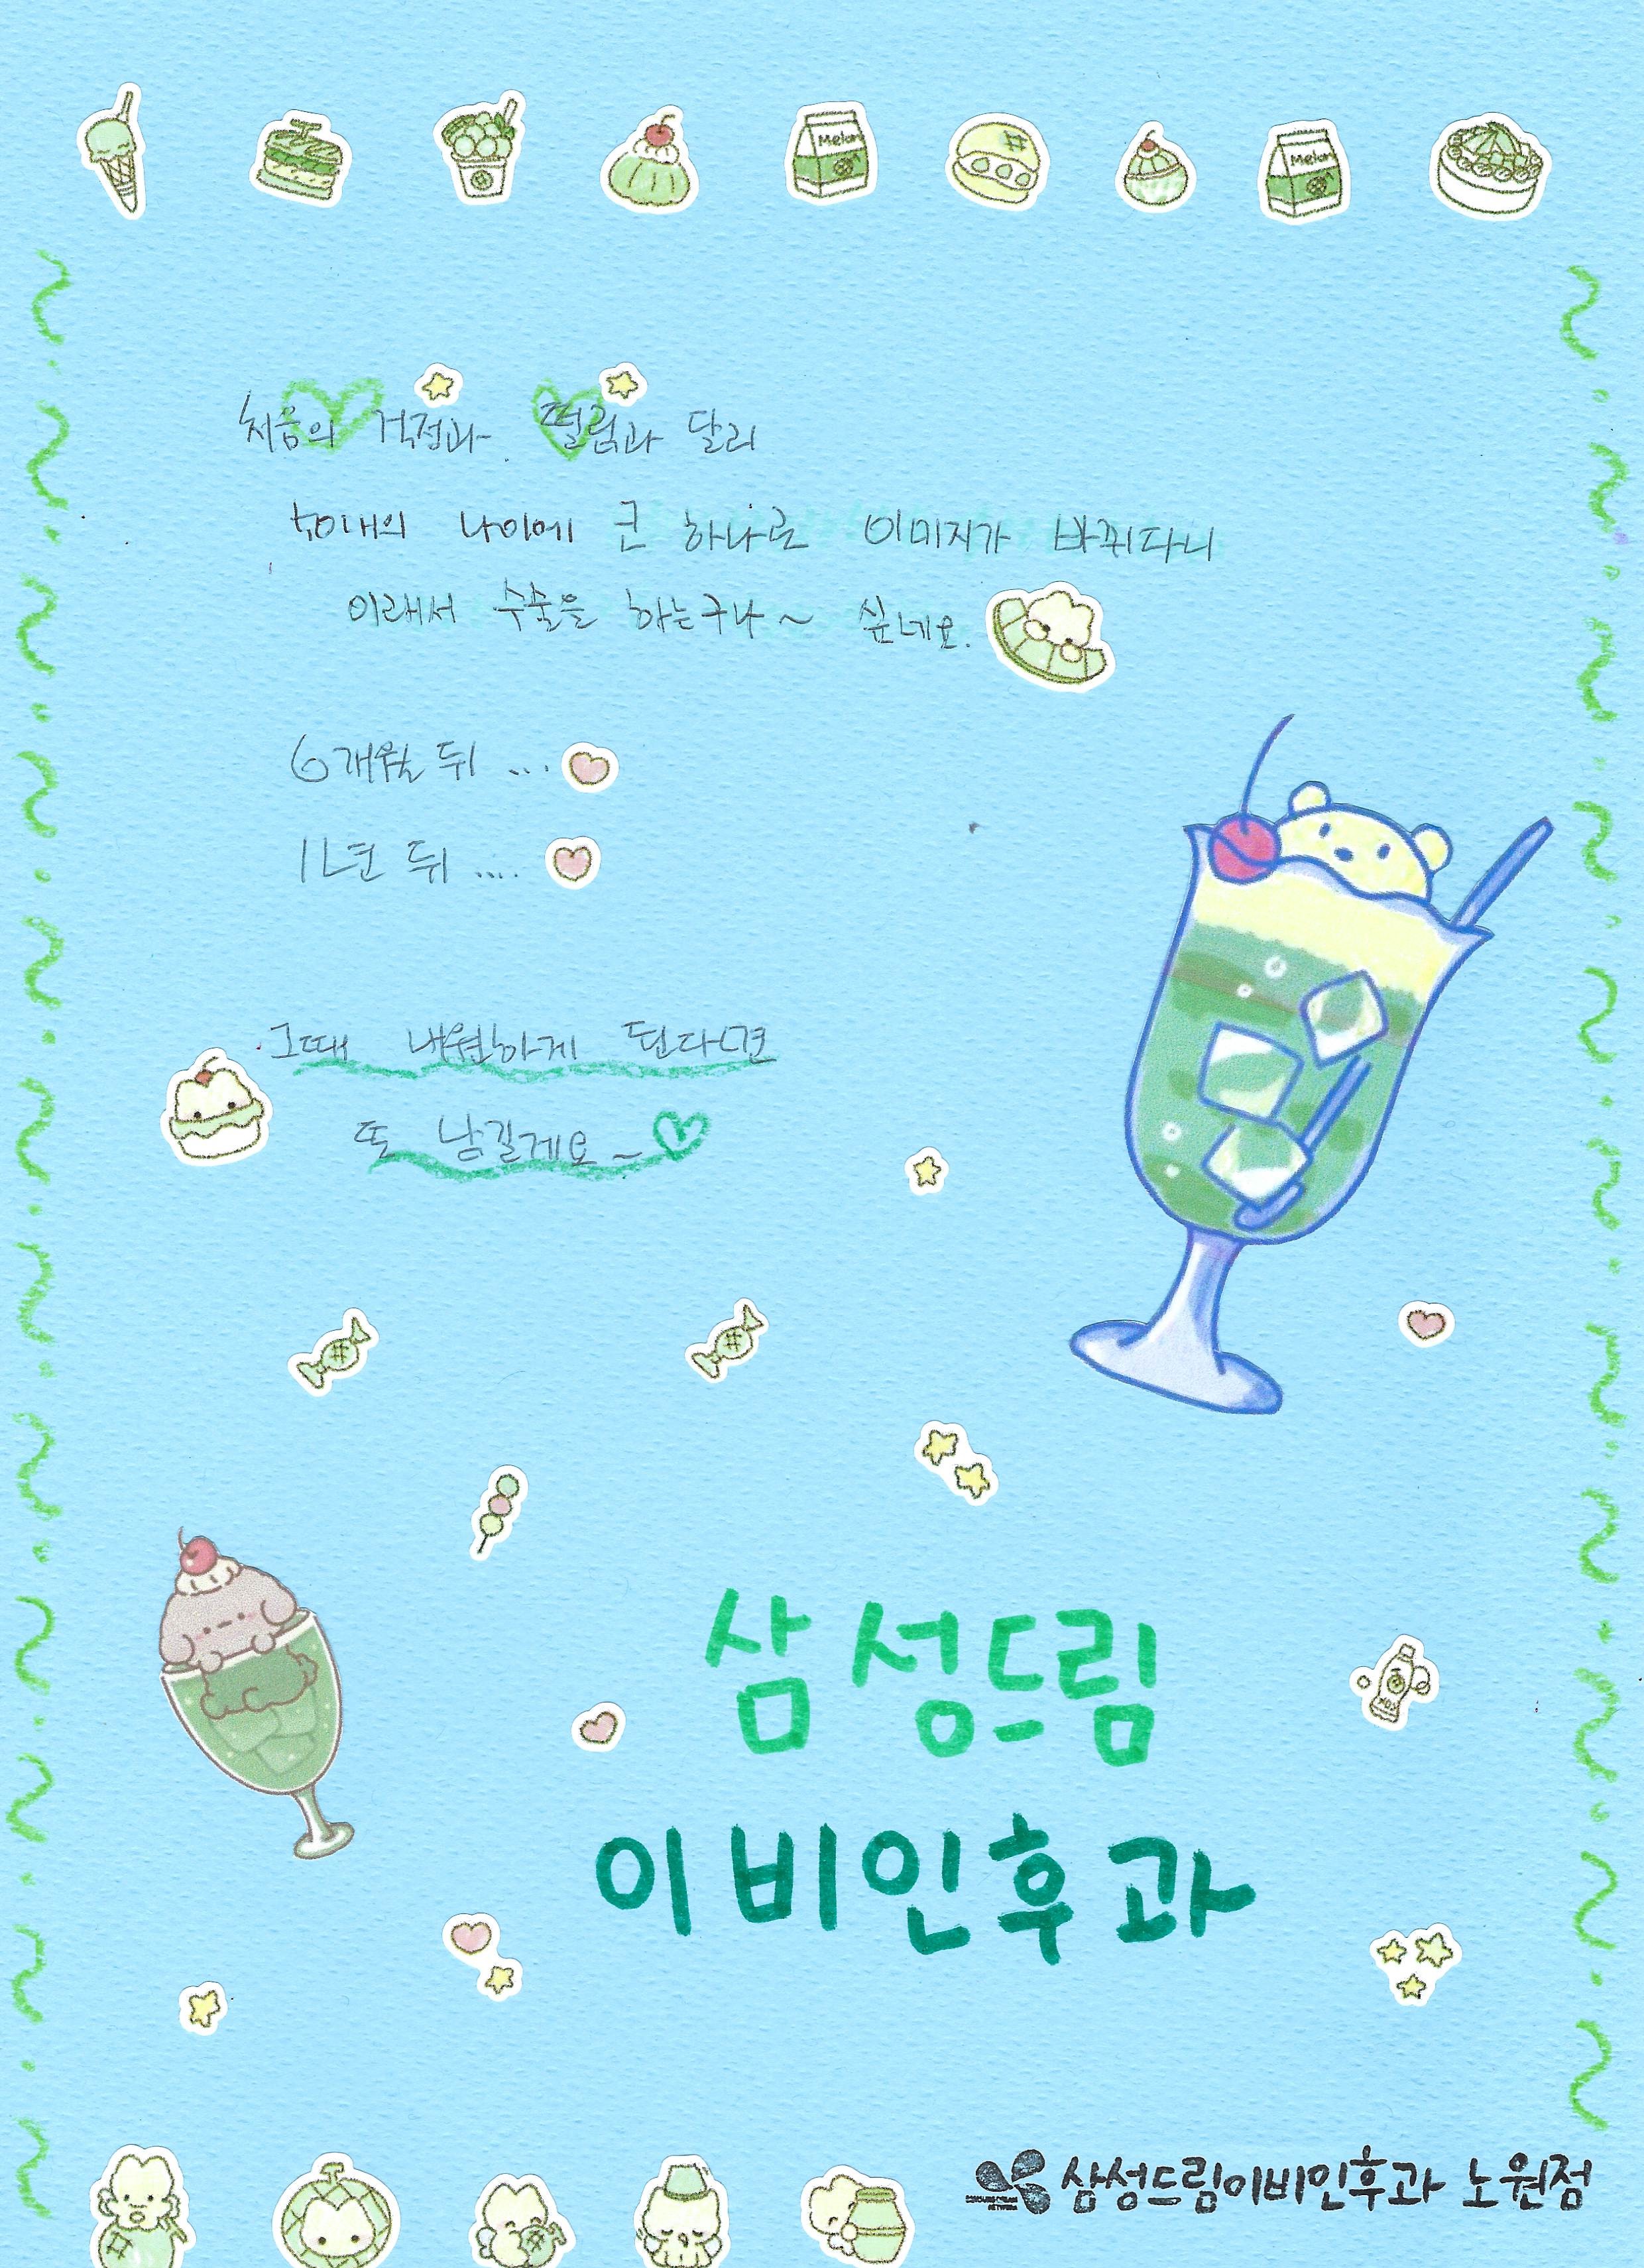 Melon
Melon
처음의 걱정과 떨림과 달리
40대의 나이에 코 하나로 이미지가 바뀌다니
이래서 수술을 하는구나~ 싶네요.
6개월 뒤 ...
1년 뒤 ....
그때 내원하게 된다면
또 남길게요~
삼성드림
이비인후과
삼성드림이비인후과 노원점